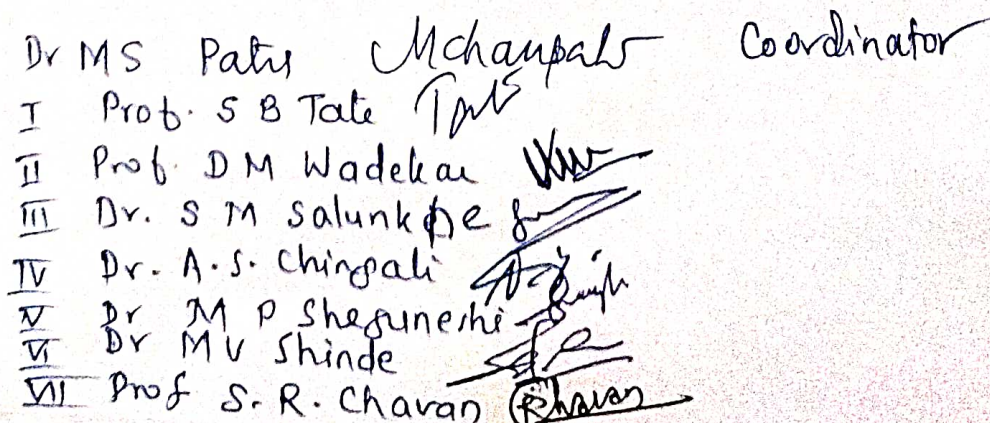 Dr MS Patil Coordinator
I Prof. S B Tate
II Prof. D M Wadekar
III Dr. S M Salunkhe
IV Dr. A.S. Chingali
V Dr M P Shegunshi
VI Dr MV Shinde
VII Prof S.R. Chavan Chavan